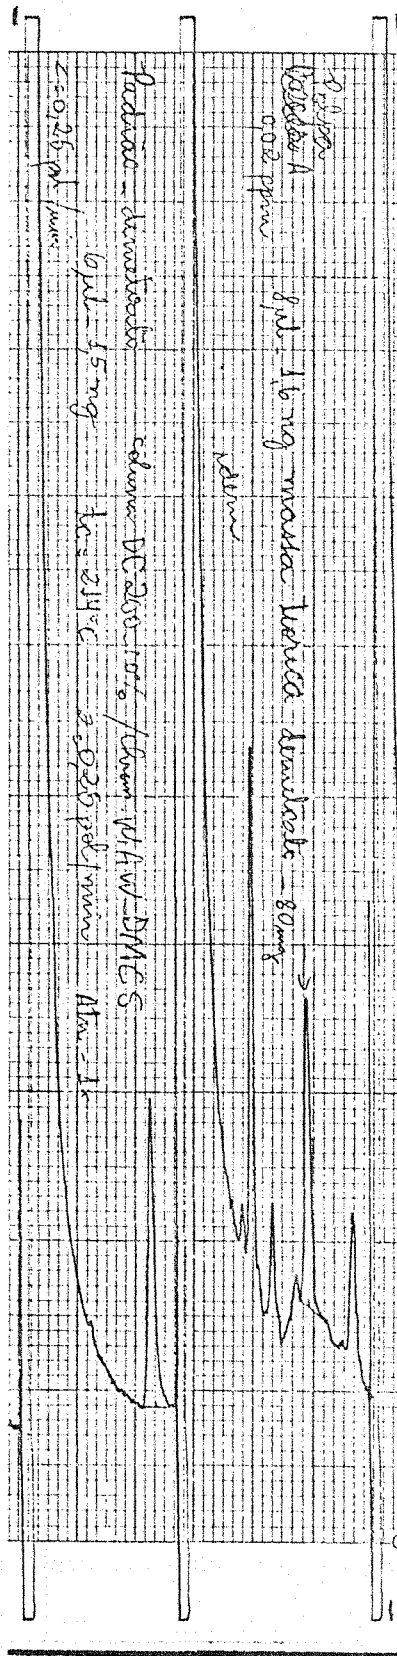 Polpa
0,02 ppm
8 µl - 1,6 ng massa teórica dimetoato - 80 mg
idem
Padrão - dimetoato coluna DC 200 - 10% / Chrom. W. A W - DMCS
6 µl - 1,5 ng tc = 214°C z = 0,25 pol/min Atn = 1x
z = 0,25 pol/min